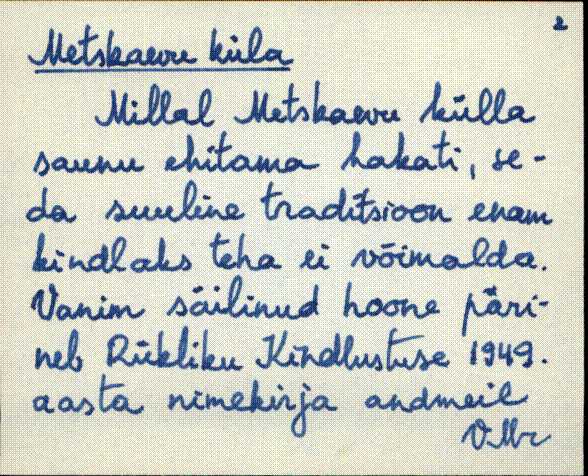 2
Metskaevu küla
Millal Metskaevu külla
saunu ehitama hakati, se-
da suuline traditsioon enam
kindlaks teha ei võimalda.
Vanim säilinud hoone päri-
neb Riikliku Kindlustuse 1949.
aasta nimekirja andmeil